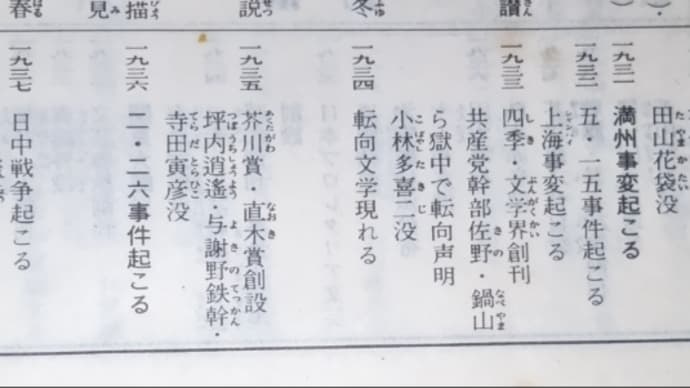 ）・
（）
讃
冬
説
描
見
春
田山花袋没
一九三一 満州事変起こる
一九三二 五・一五事件起こる
上海事変起こる
一九三三 四季・文学界創刊
共産党幹部佐野・鍋山
ら獄中で転向声明
小林多喜二没
一九三四 転向文学現れる
一九三五 芥川賞・直木賞創設
坪内逍遙・与謝野鉄幹・
寺田寅彦没
一九三六 二・二六事件起こる
一九三七 日中戦争起こる